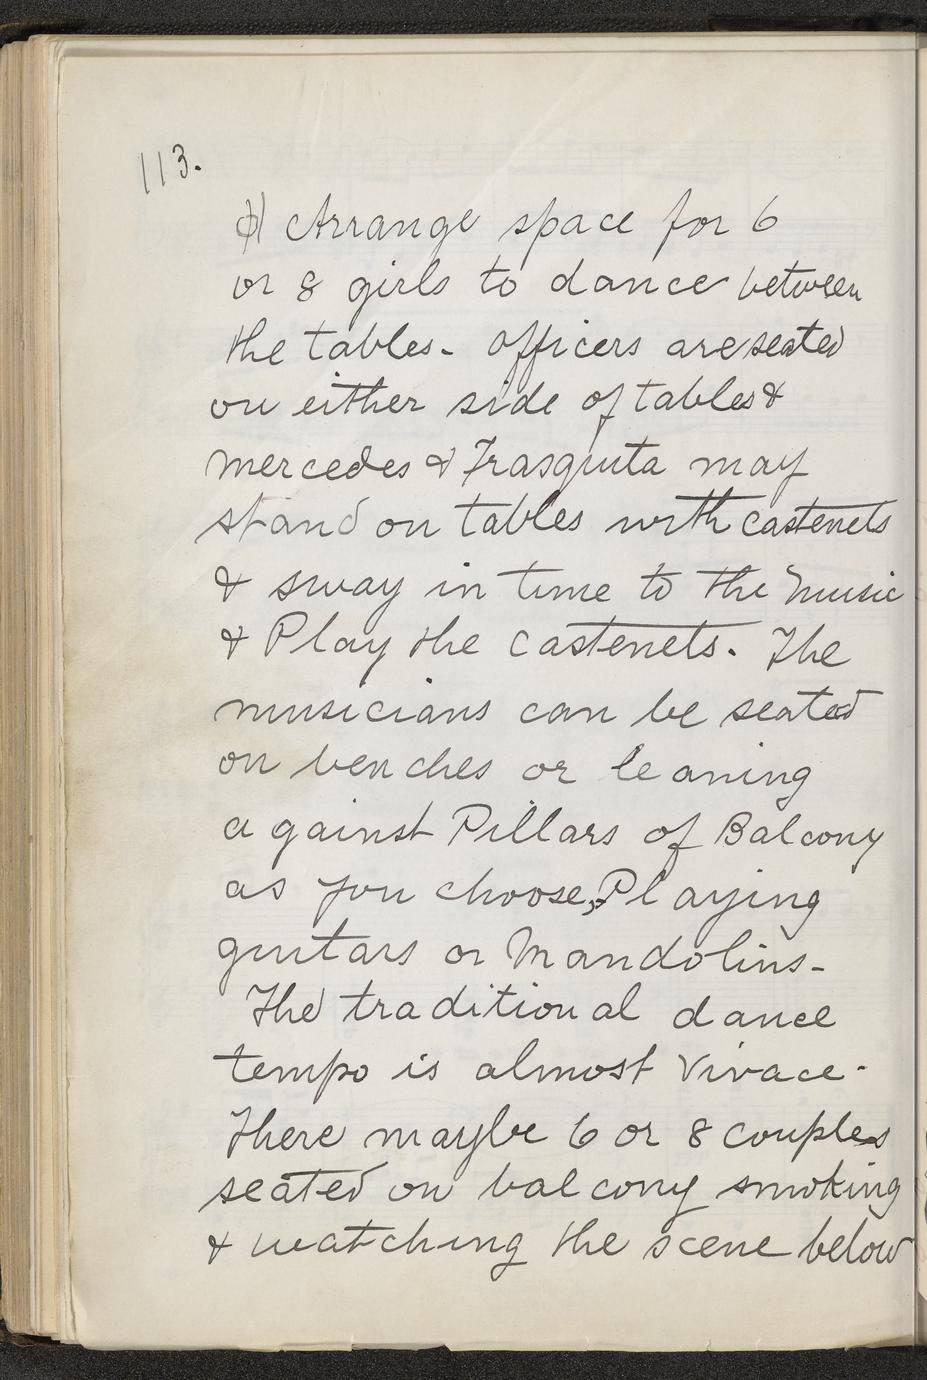 113.
1) Arrange space for 6
or 8 girls to dance between
the tables. Officers are seated
on either side of tables &
Mercedes & Frasquita may
stand on tables with castenets
& sway in time to the music
& Play the castenets. The
musicians can be seated
on benches or leaning
against Pillars of Balcony
as you choose, Playing
guitars or Mandolins-
The traditional dance
tempo is almost Vivace.
There maybe 6 or 8 couples
seated on balcony smoking
& watching the scene below